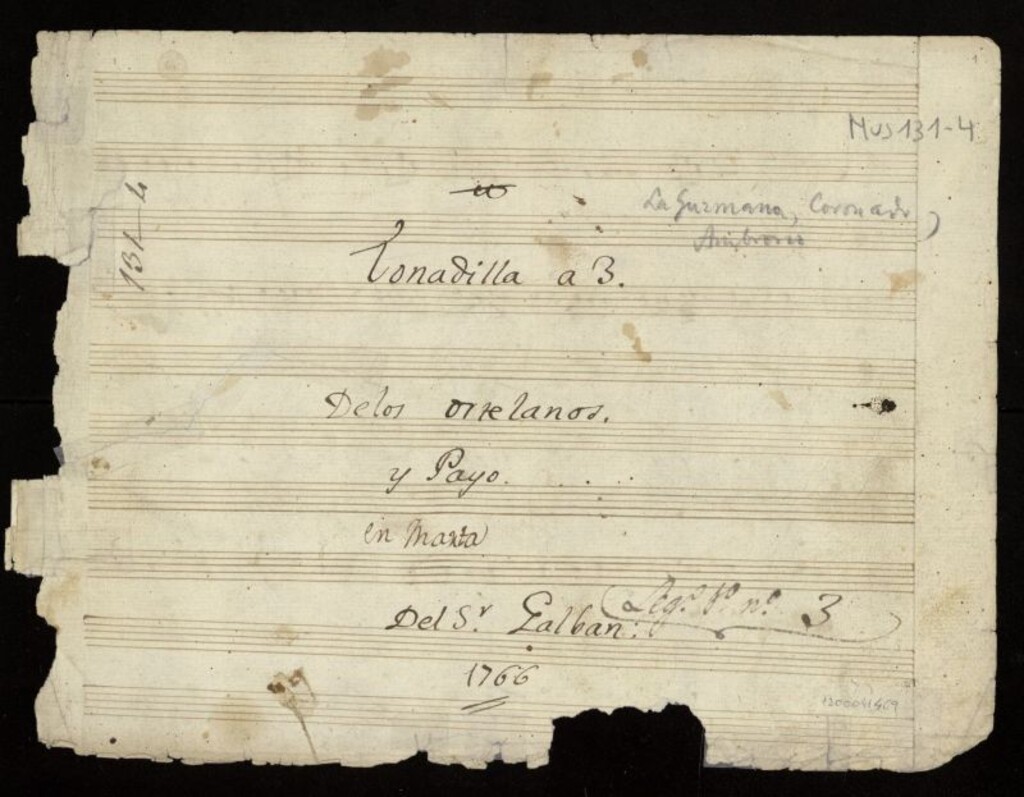 1
Mus 131-4
131-4
La Guzmana, Coronado,
Ambrosio
Tonadilla a 3.
Delos ortelanos.
y Payo.
en Marta
Del Sr. Galban:
Leg.º 1º nº 3
1766
1200041469